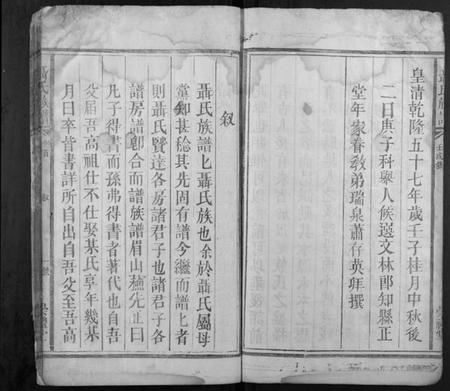 皇清乾隆五十七年歲壬子桂月中秋後
二日庚子科舉人候選文林郎知縣正
堂年家眷敎弟瑞泉蕭存英拜撰
敘
聶氏族譜匕聶氏族也余於聶氏屬母
黨知甚稔其先固有譜今繼而譜匕者
則聶氏賢達各房諸君子也諸君子各
譜房譜創合而譜族譜眉山蘇先正曰
凡子得書而孫弗得書者著代也自吾
父屆吾高祖仕不仕娶某氏享年幾某
月日卒皆書詳所自出自吾父至吾高
聶氏族